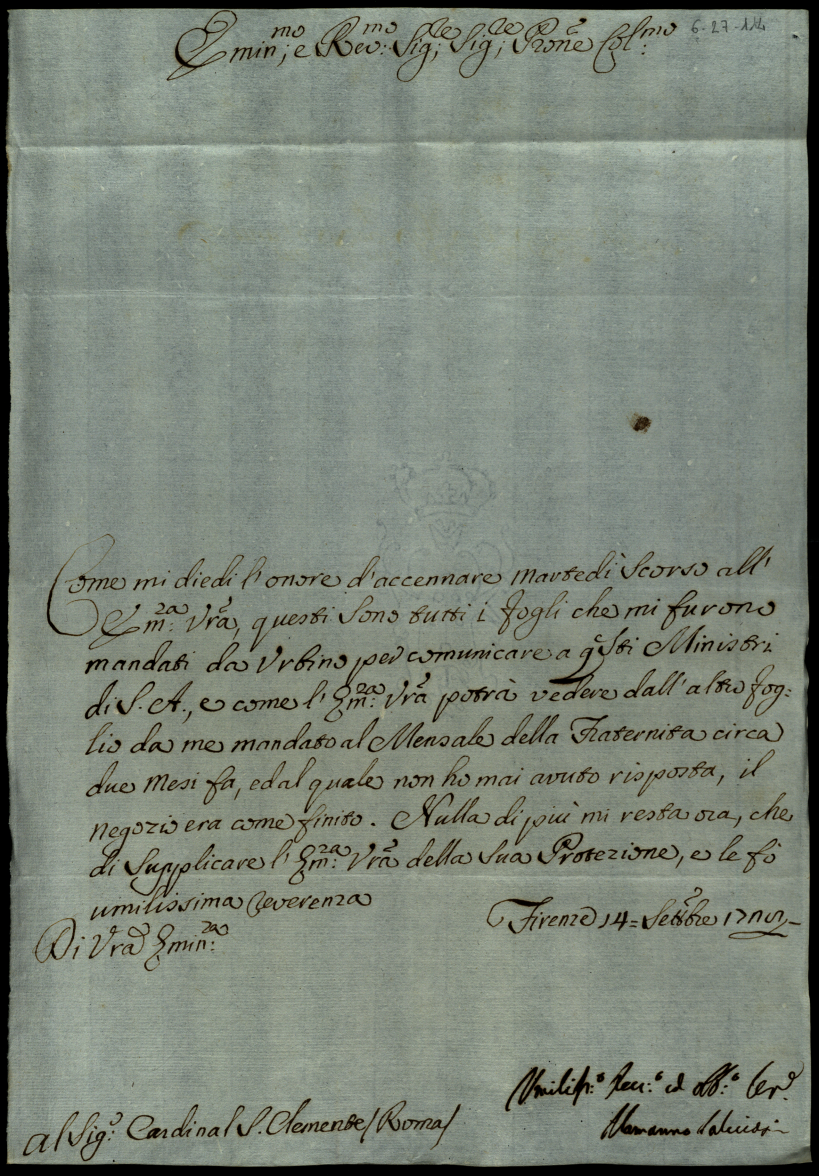 Emin:mo e Rev:mo Sig:re Sig:re Prone Col:mo
6-27-114
Come mi diedi l'onore d'accennare martedì scorso all'
Em:za Vra, questi sono tutti i fogli che mi furono
mandati da Urbino per comunicare a qsti Ministri
di S. A., e come l'Em:za Vra potrà vedere dall'altro fog:
lio da me mandato al Mensale della Fraternita circa
due mesi fa, ed al quale non ho mai avuto risposta, il
negozio era come finito. Nulla di più mi resta ora, che
di supplicare l'Em:za Vra della sua Protezione, e le fò
umilissima reverenza
Firenze 14= Settbre
Di Vra Emin:za
Umiliss:o Dev:o ed Obb:o Ser.e
Alamanno Salviati
al Sig:e Cardinal S. Clemente /Roma/